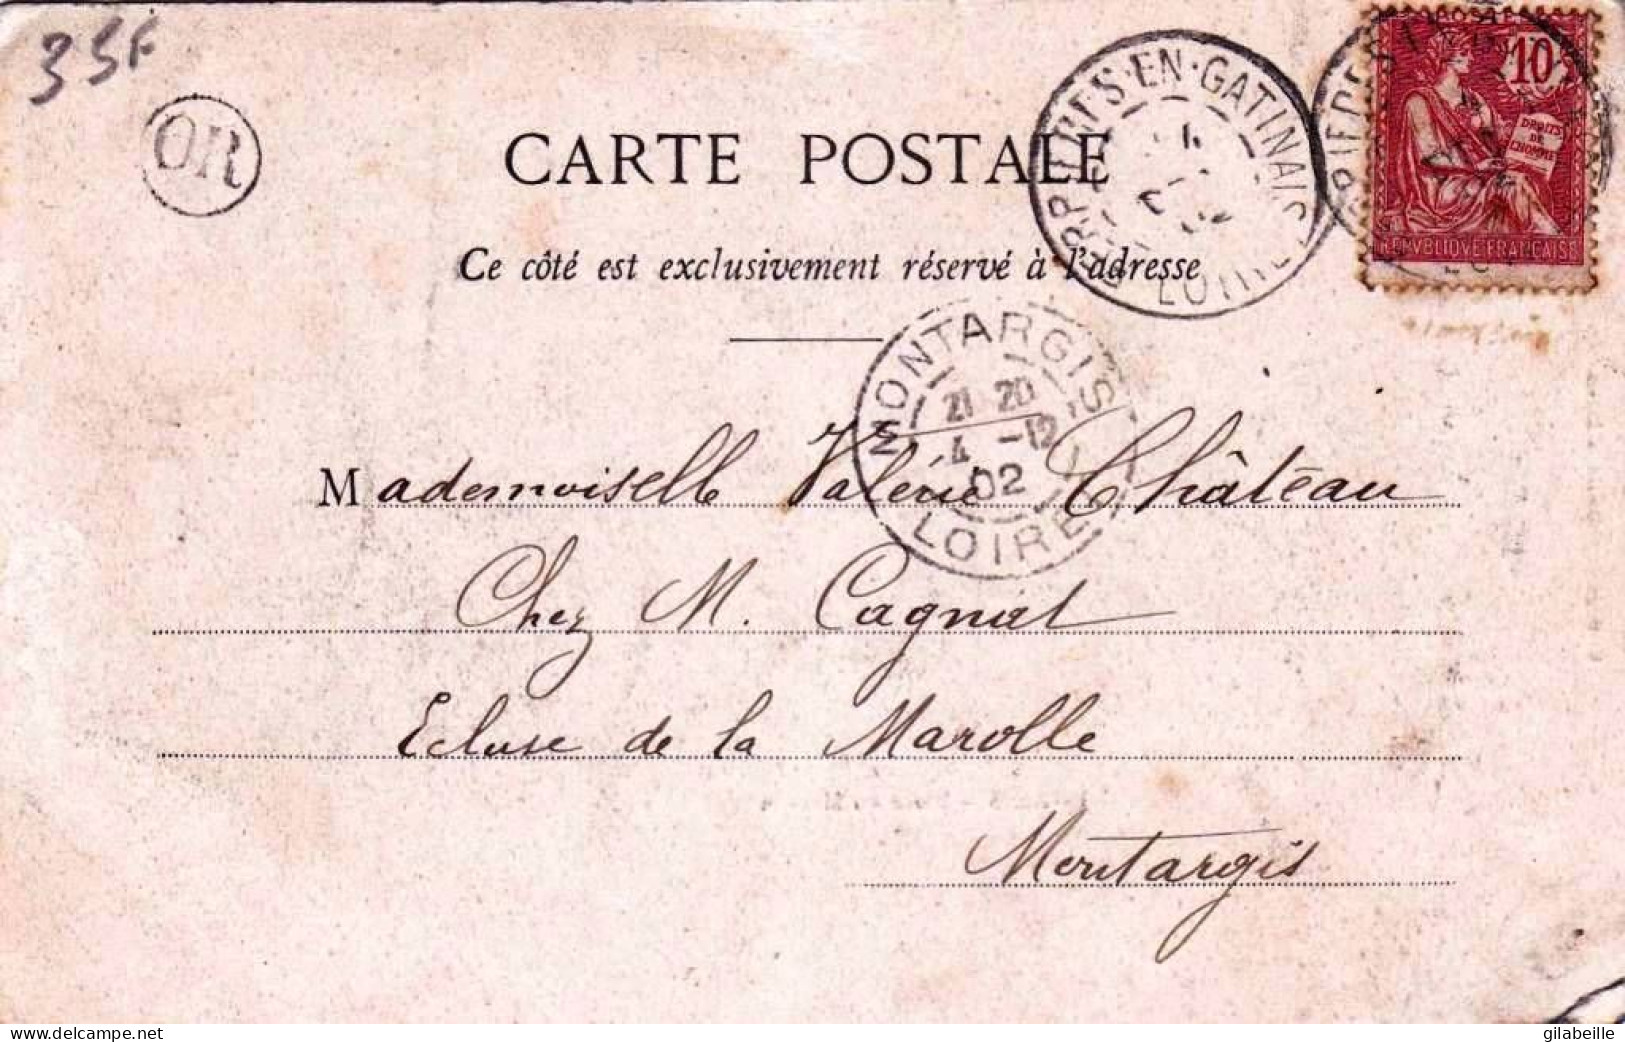 35F
OR
CARTE POSTALE
Ce côté est exclusivement réservé à l'adresse
FERRIERES-EN-GATINAIS
LOIRET
POSTES
10
DROITS
DE
L'HOMME
REPVBLIQVE FRANÇAISE
MONTARGIS
21 20
4 -12
02
LOIRET
Mademoiselle Valérie Château
Chez M. Cagnat
Ecluse de la Marolle
Montargis
gilabeille